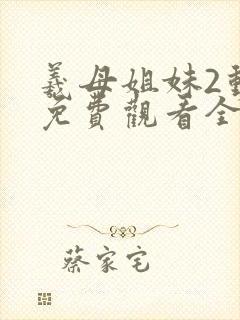 義母姐妹2動
免費觀看全
蔡家宅